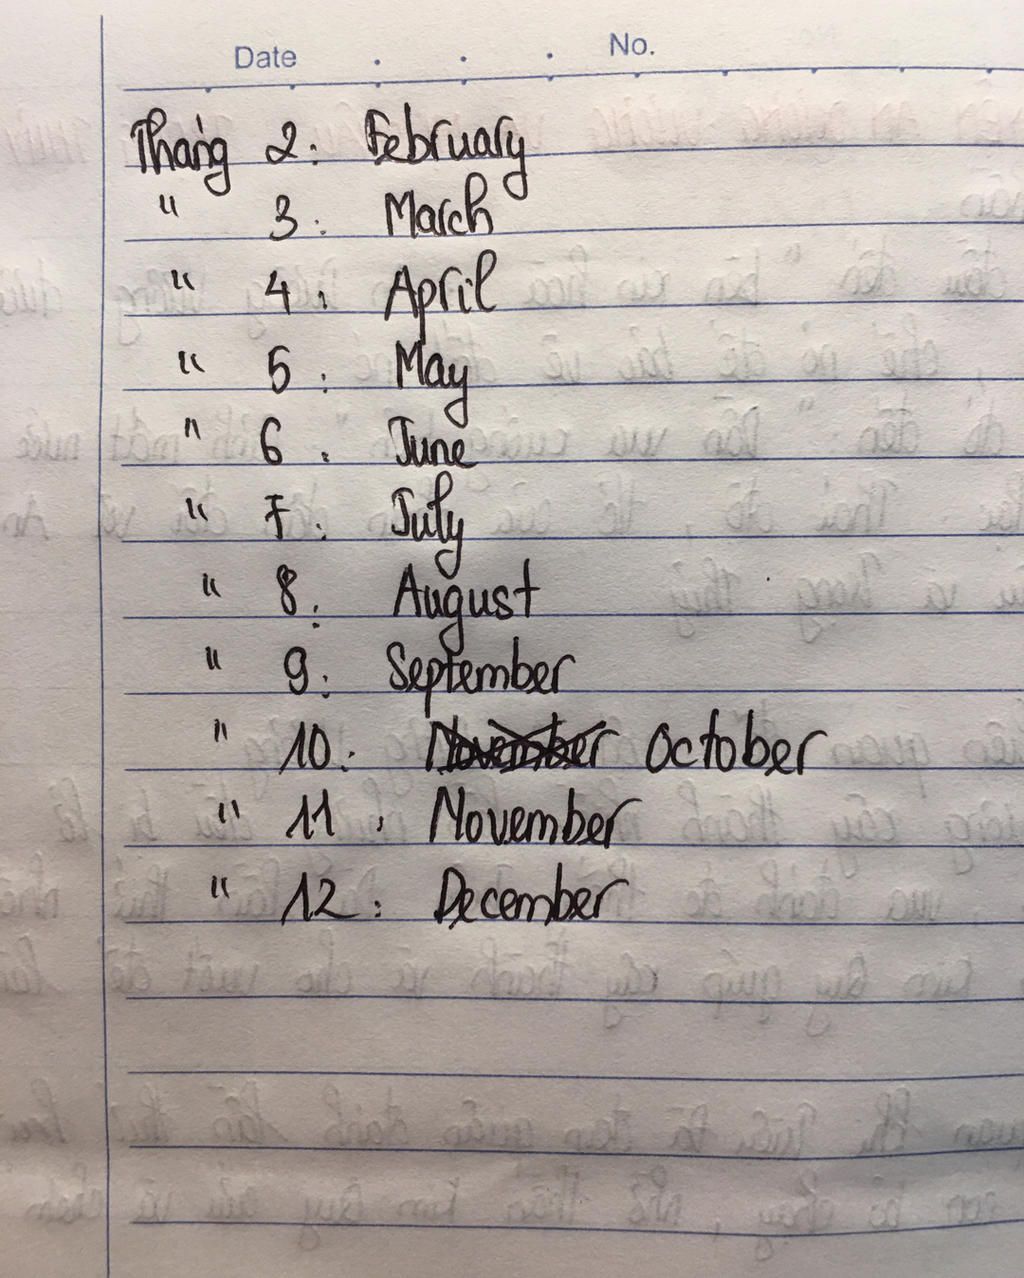 Date . . . No.
Tháng 2: February
" 3: March
" 4: April
" 5: May
" 6: June
" 7: July
" 8: August
" 9: September
" 10: November October
" 11: November
" 12: December